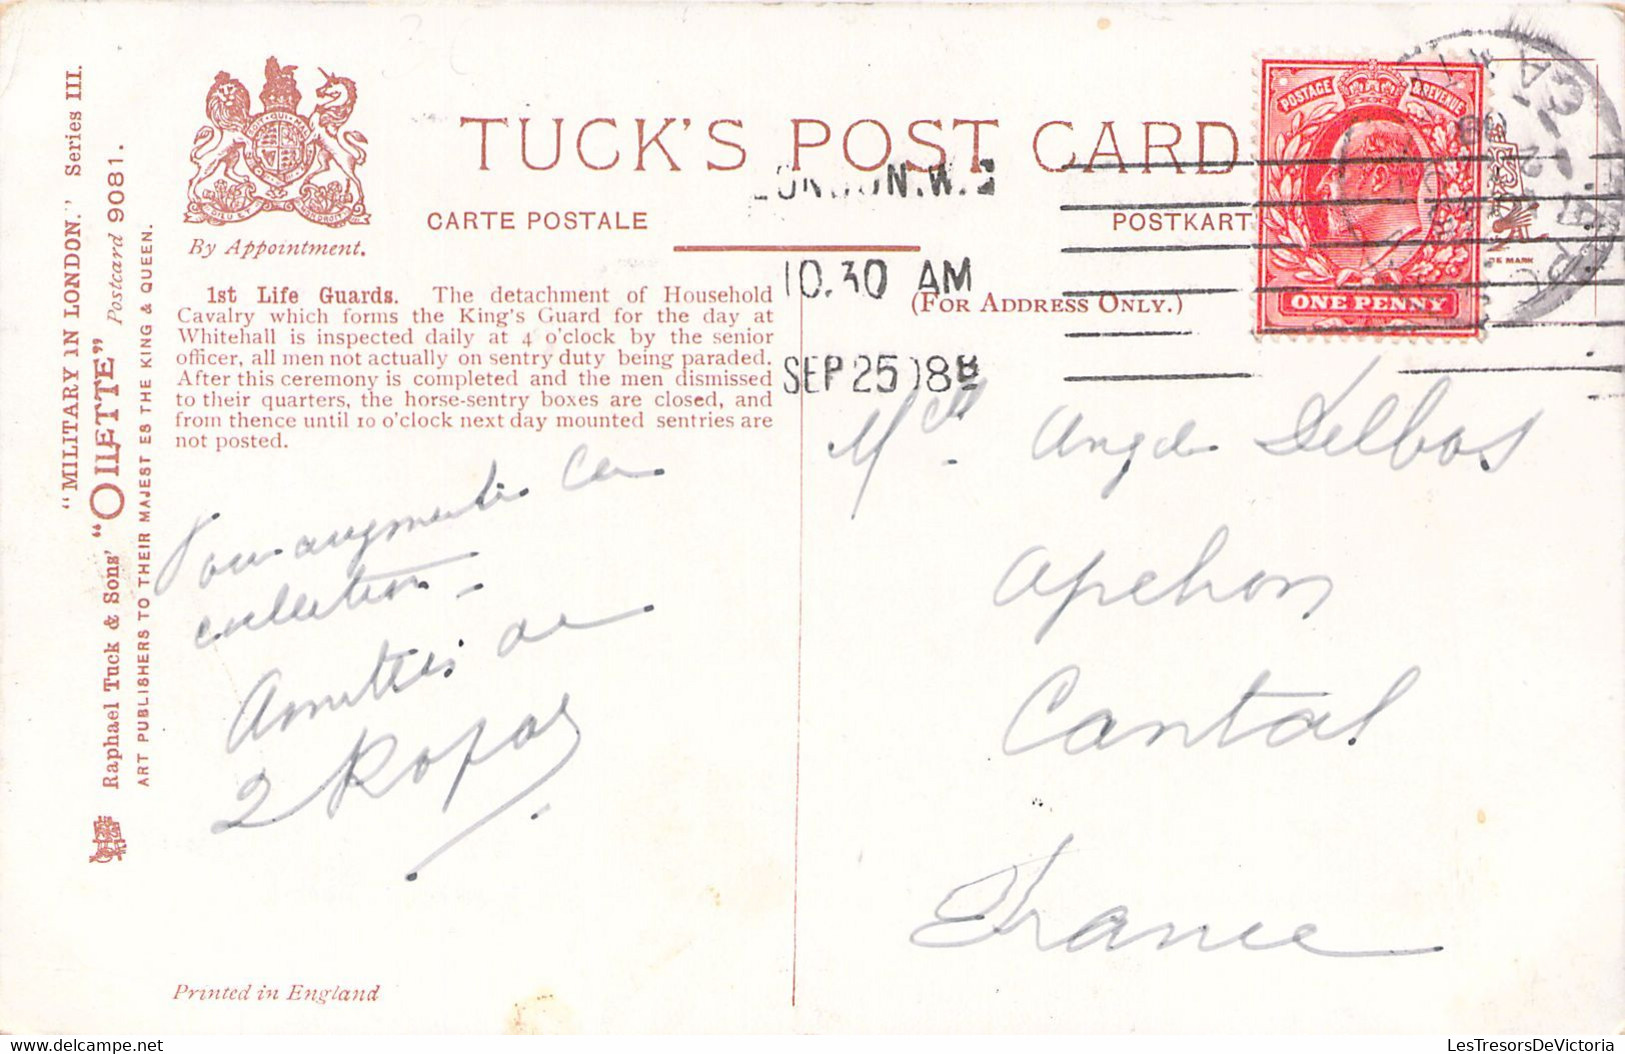 "MILITARY IN LONDON." Series III.
Raphael Tuck & Sons' "OILETTE" Postcard 9081.
ART PUBLISHERS TO THEIR MAJESTIES THE KING & QUEEN.
By Appointment.
TUCK'S POST CARD
CARTE POSTALE
POSTKART
(FOR ADDRESS ONLY.)
POSTAGE & REVENUE
ONE PENNY
LONDON.W.
10.30 AM
SEP 25 08
1st Life Guards. The detachment of Household
Cavalry which forms the King's Guard for the day at
Whitehall is inspected daily at 4 o'clock by the senior
officer, all men not actually on sentry duty being paraded.
After this ceremony is completed and the men dismissed
to their quarters, the horse-sentry boxes are closed, and
from thence until 10 o'clock next day mounted sentries are
not posted.
Pour augmenter la
collection -
Amitiés de
Melle Angèle Delbos
Apchon
Cantal
France
Printed in England
delcampe.net
LesTresorsDeVictoria